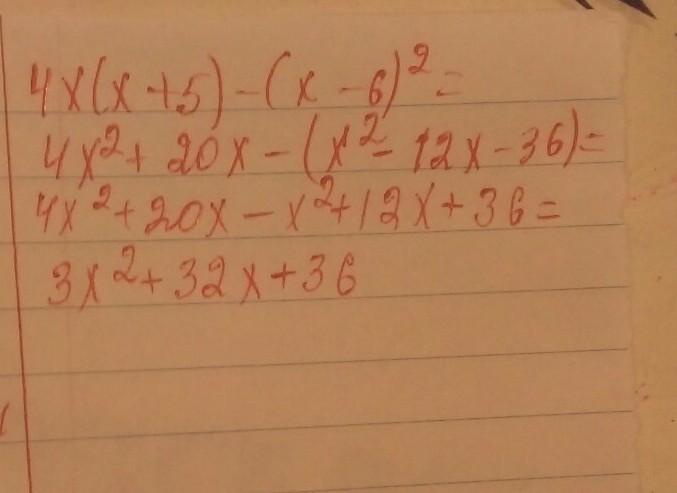 4x(x+5)-(x-6)²=
4x²+20x-(x²-12x-36)=
4x²+20x-x²+12x+36=
3x²+32x+36